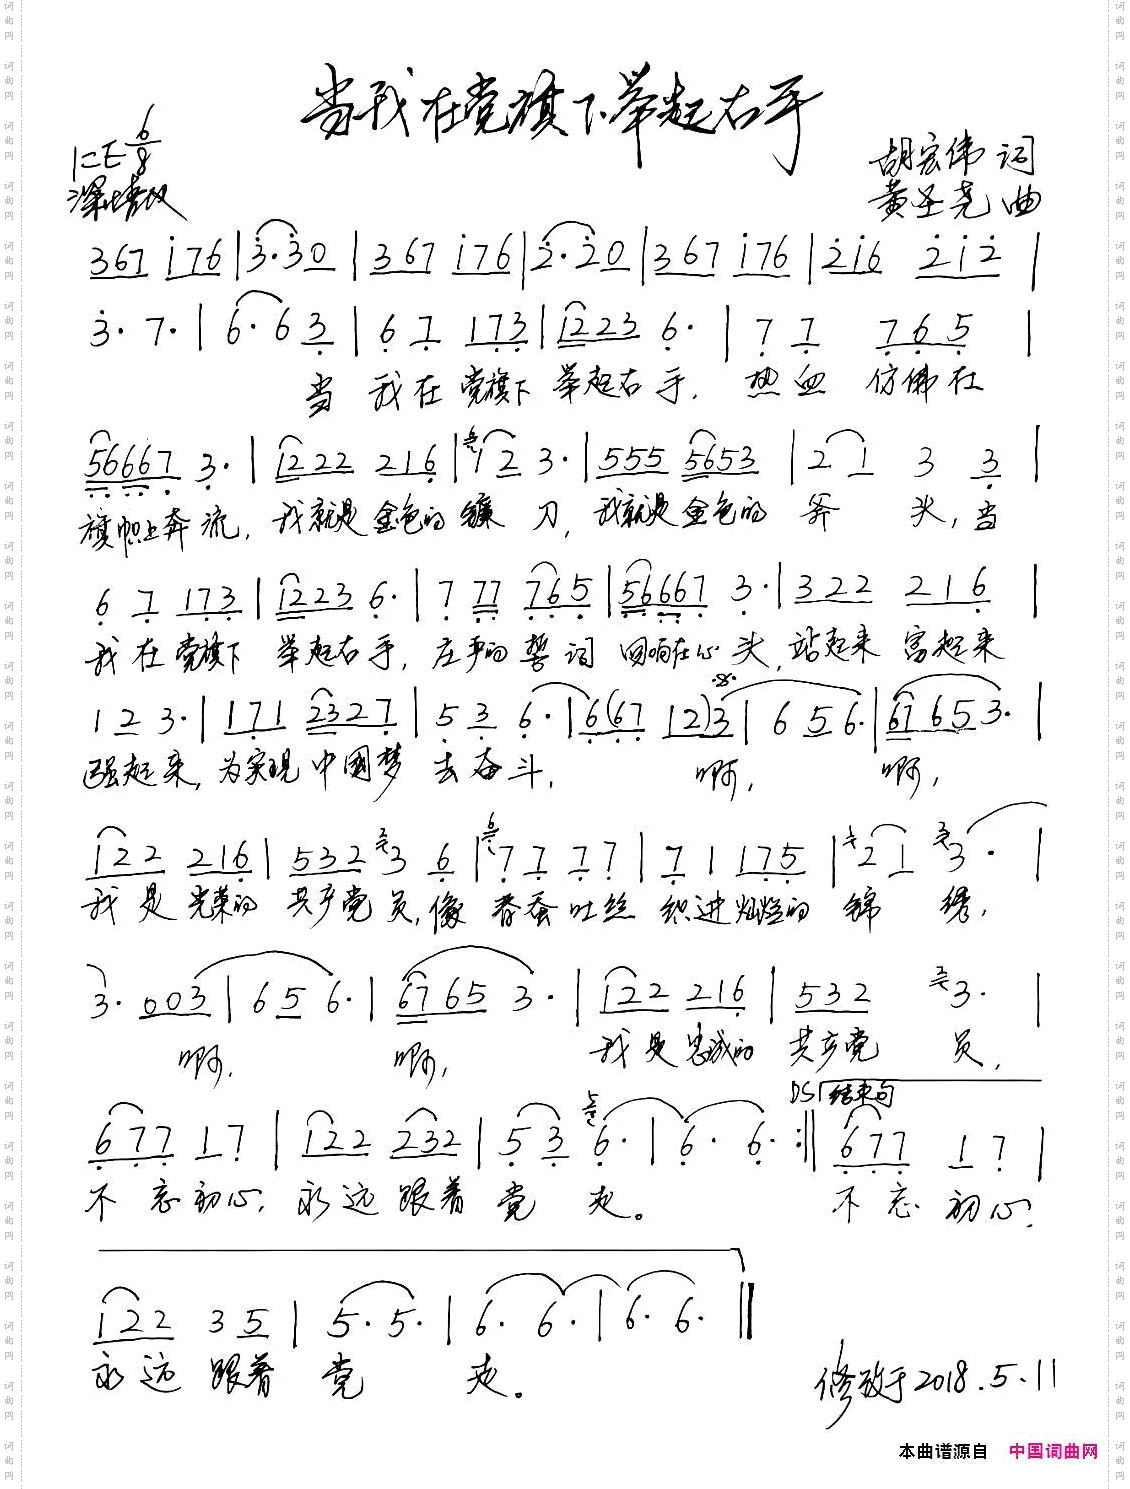 当我在党旗下举起右手
1=E 6/8
深情敬仰
胡宏伟 词
黄圣尧 曲
367 i76 | 3·30 | 367 i76 | 2·20 | 367 i76 | 2i6 2i2 |
3· 7· | 6·6 3 | 6 7 173 | 1223 6· | 7 7 765 |
当 我在 党旗下 举起右 手, 热血 仿佛在
56667 3· | 1222 216 | 12 3· | 555 5653 | 2 1 3 3 |
旗帜上奔 流, 我就是 金色的 镰 刀, 我就是 金色的 斧 头, 当
6 7 173 | 1223 6· | 7 77 765 | 56667 3· | 322 216 |
我在 党旗下 举起右 手, 庄严的 誓词 回响在心 头, 站起来 富起来
1 2 3· | 171 2327 | 5 3 6· | 6(67 12)3 | 6 5 6· | 6765 3· |
强起来, 为实现 中国梦 去奋斗, 啊, 啊,
122 216 | 532 3 6 | 7 7 7 7 | 7 1 175 | 2 1 3· |
我是 光荣的 共产党 员, 像 春蚕吐丝 织进灿烂的 锦 绣,
3· 003 | 6 5 6· | 6765 3· | 122 216 | 532 3· |
啊, 啊, 我是 忠诚的 共产党 员,
DS 结束句
677 17 | 122 232 | 5 3 6· | 6· 6· :‖ 677 1 7 |
不忘初心, 永远跟着 党 走。 不忘 初心,
122 3 5 | 5· 5· | 6· 6· | 6· 6· ‖
永远 跟着 党 走。
修改于2018.5.11
本曲谱源自 中国词曲网